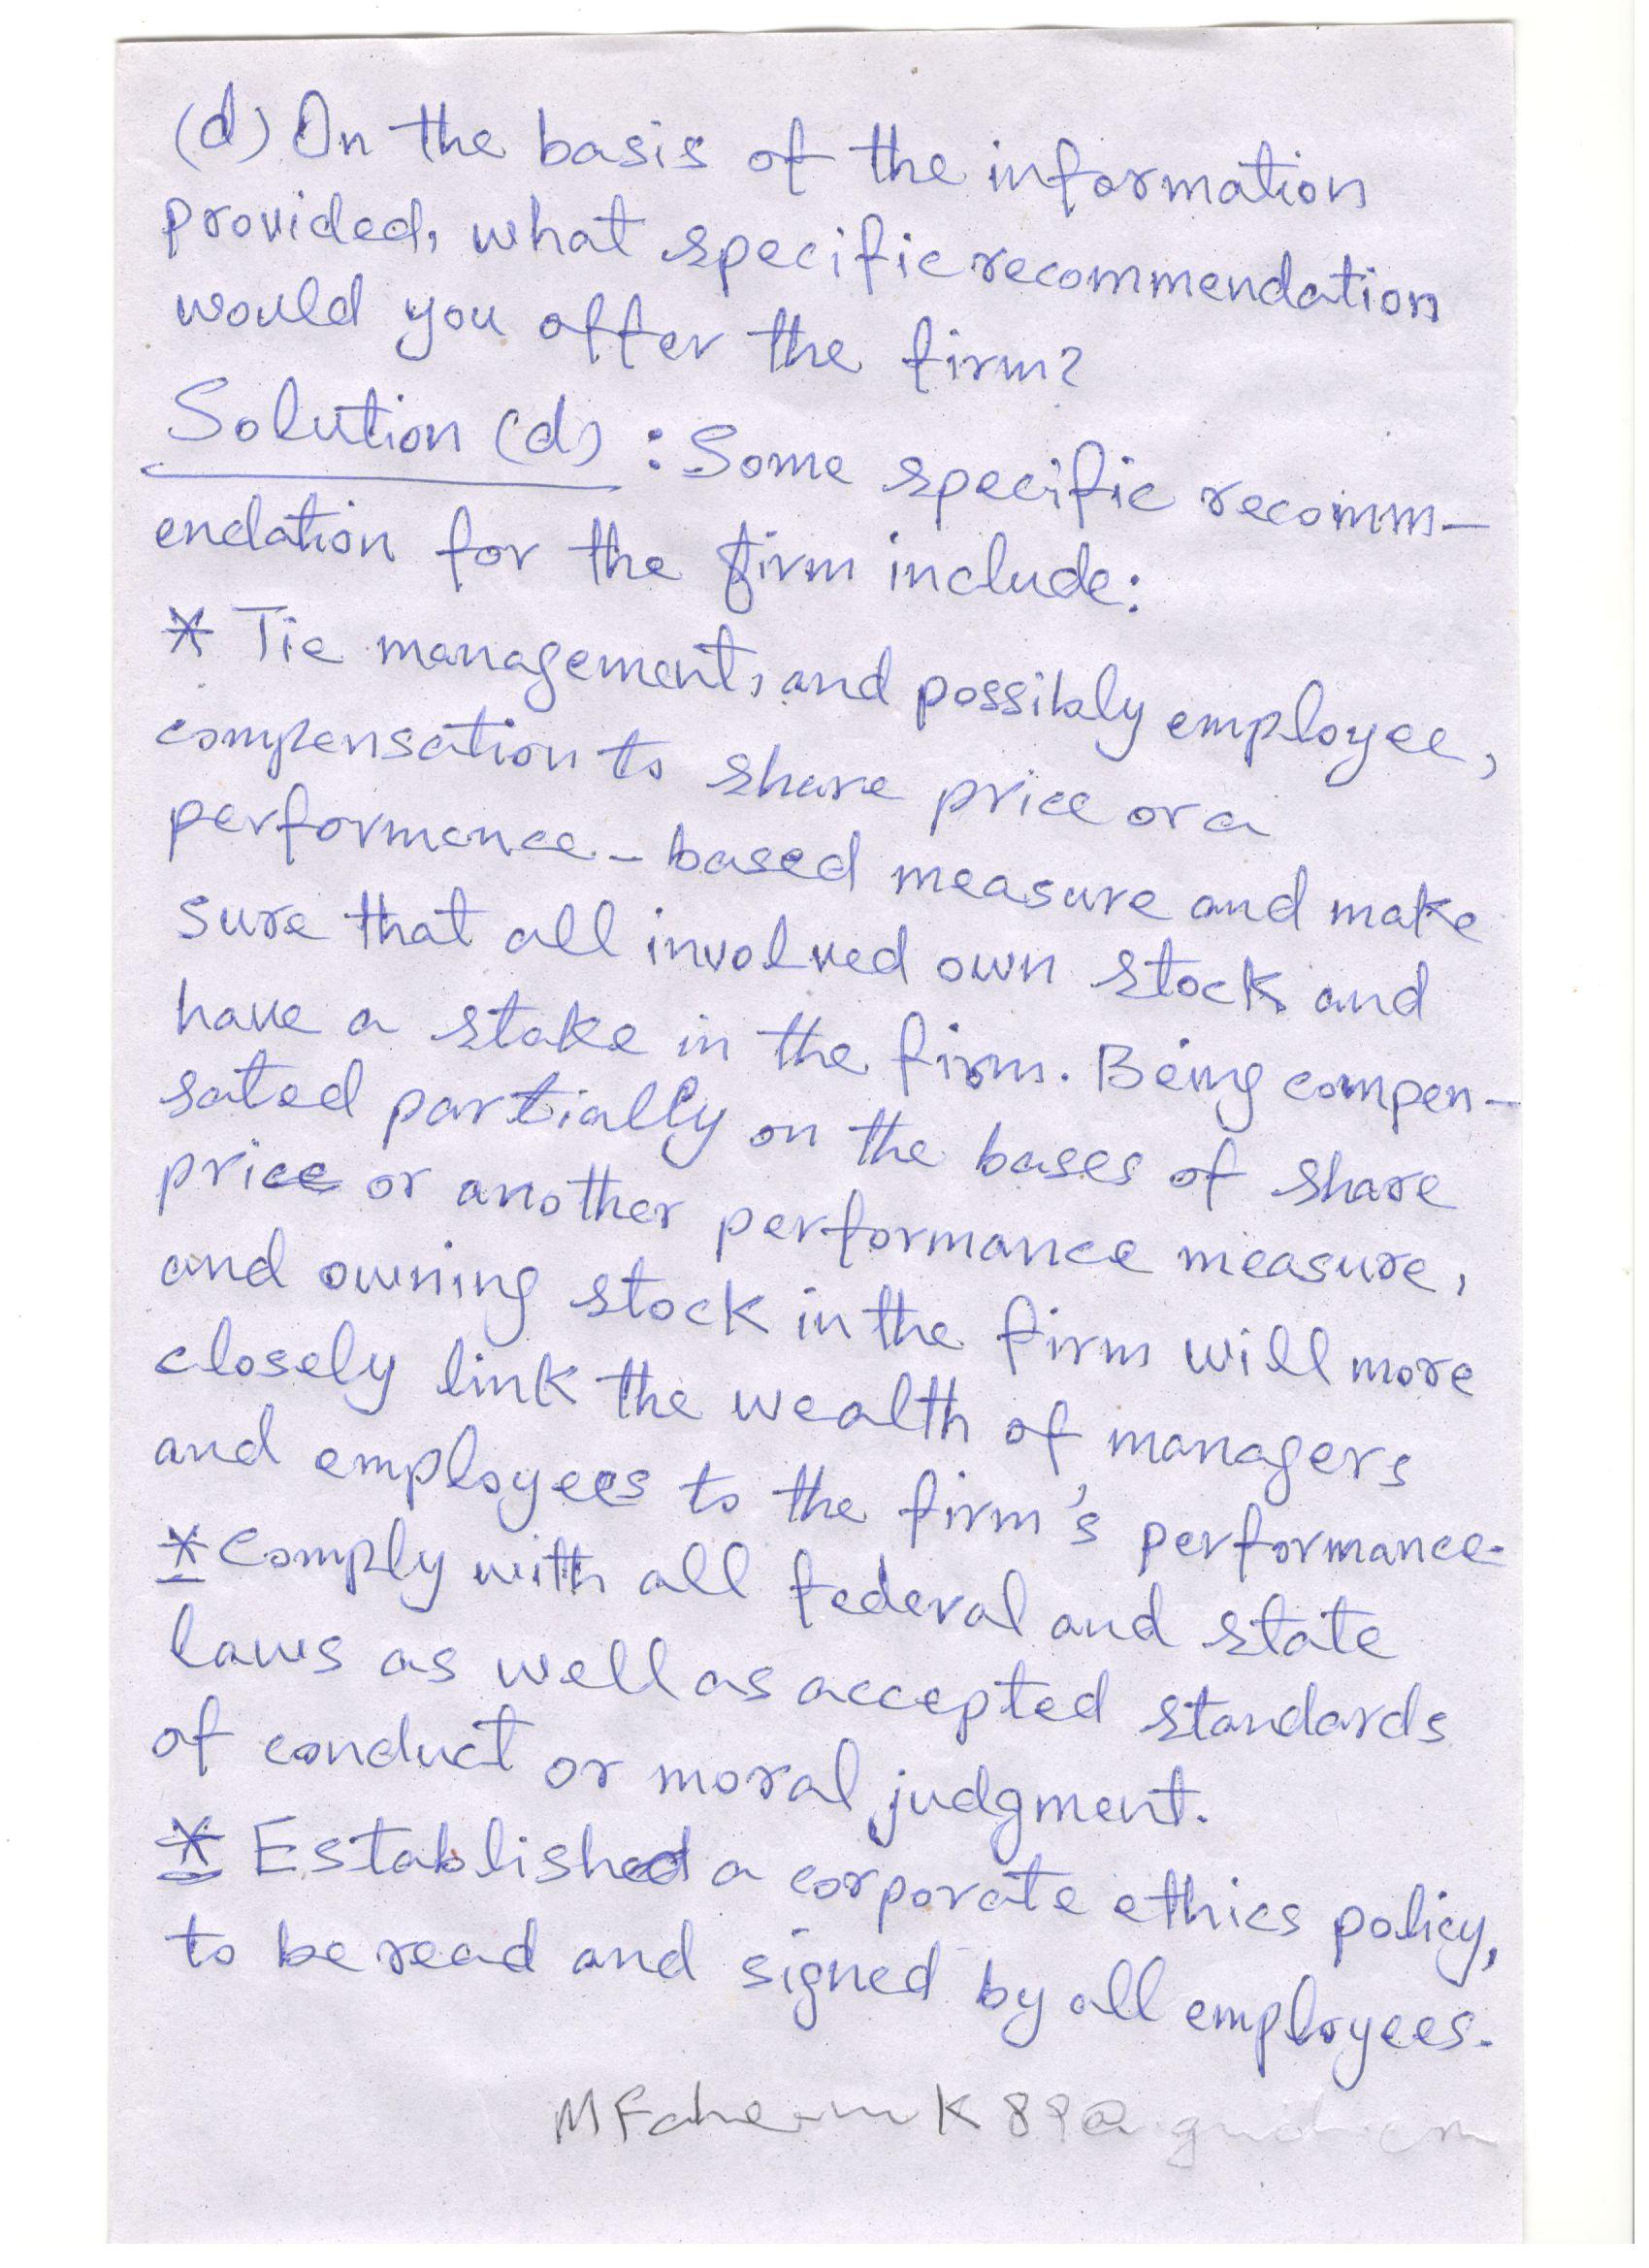 (d) On the basis of the information
provided, what specific recommendation
would you offer the firm?
Solution (d) : Some specific recomm-
endation for the firm include:
* Tie management, and possibly employee,
compensation to share price or a
performance-based measure and make
sure that all involved own stock and
have a stake in the firm. Being compen-
sated partially on the bases of share
price or another performance measure,
and owning stock in the firm will more
closely link the wealth of managers
and employees to the firm's performance.
* Comply with all federal and state
laws as well as accepted standards
of conduct or moral judgment.
* Established a corporate ethics policy,
to be read and signed by all employees.